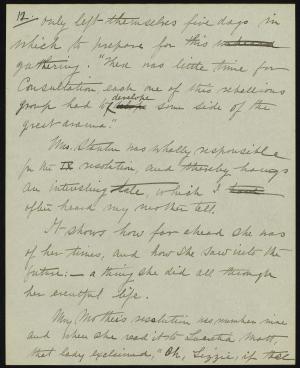 12.
only left themselves five days in
which to prepare for this
gathering. "There was little time for
Consultation, each one of this rebellious
group had to develope some side of the
great drama."
Mrs. Stanton was wholly responsible
for the IX resolution, and thereby hangs
an interesting tale, which I had
often heard my mother tell.
It shows how far ahead she was
of her times, and how she saw into the
future:— a thing she did all through
her eventful life.
My Mother's resolution was number nine
and when she read it to Lucretia Mott,
that lady exclaimed, "Oh, Lizzie, if thee